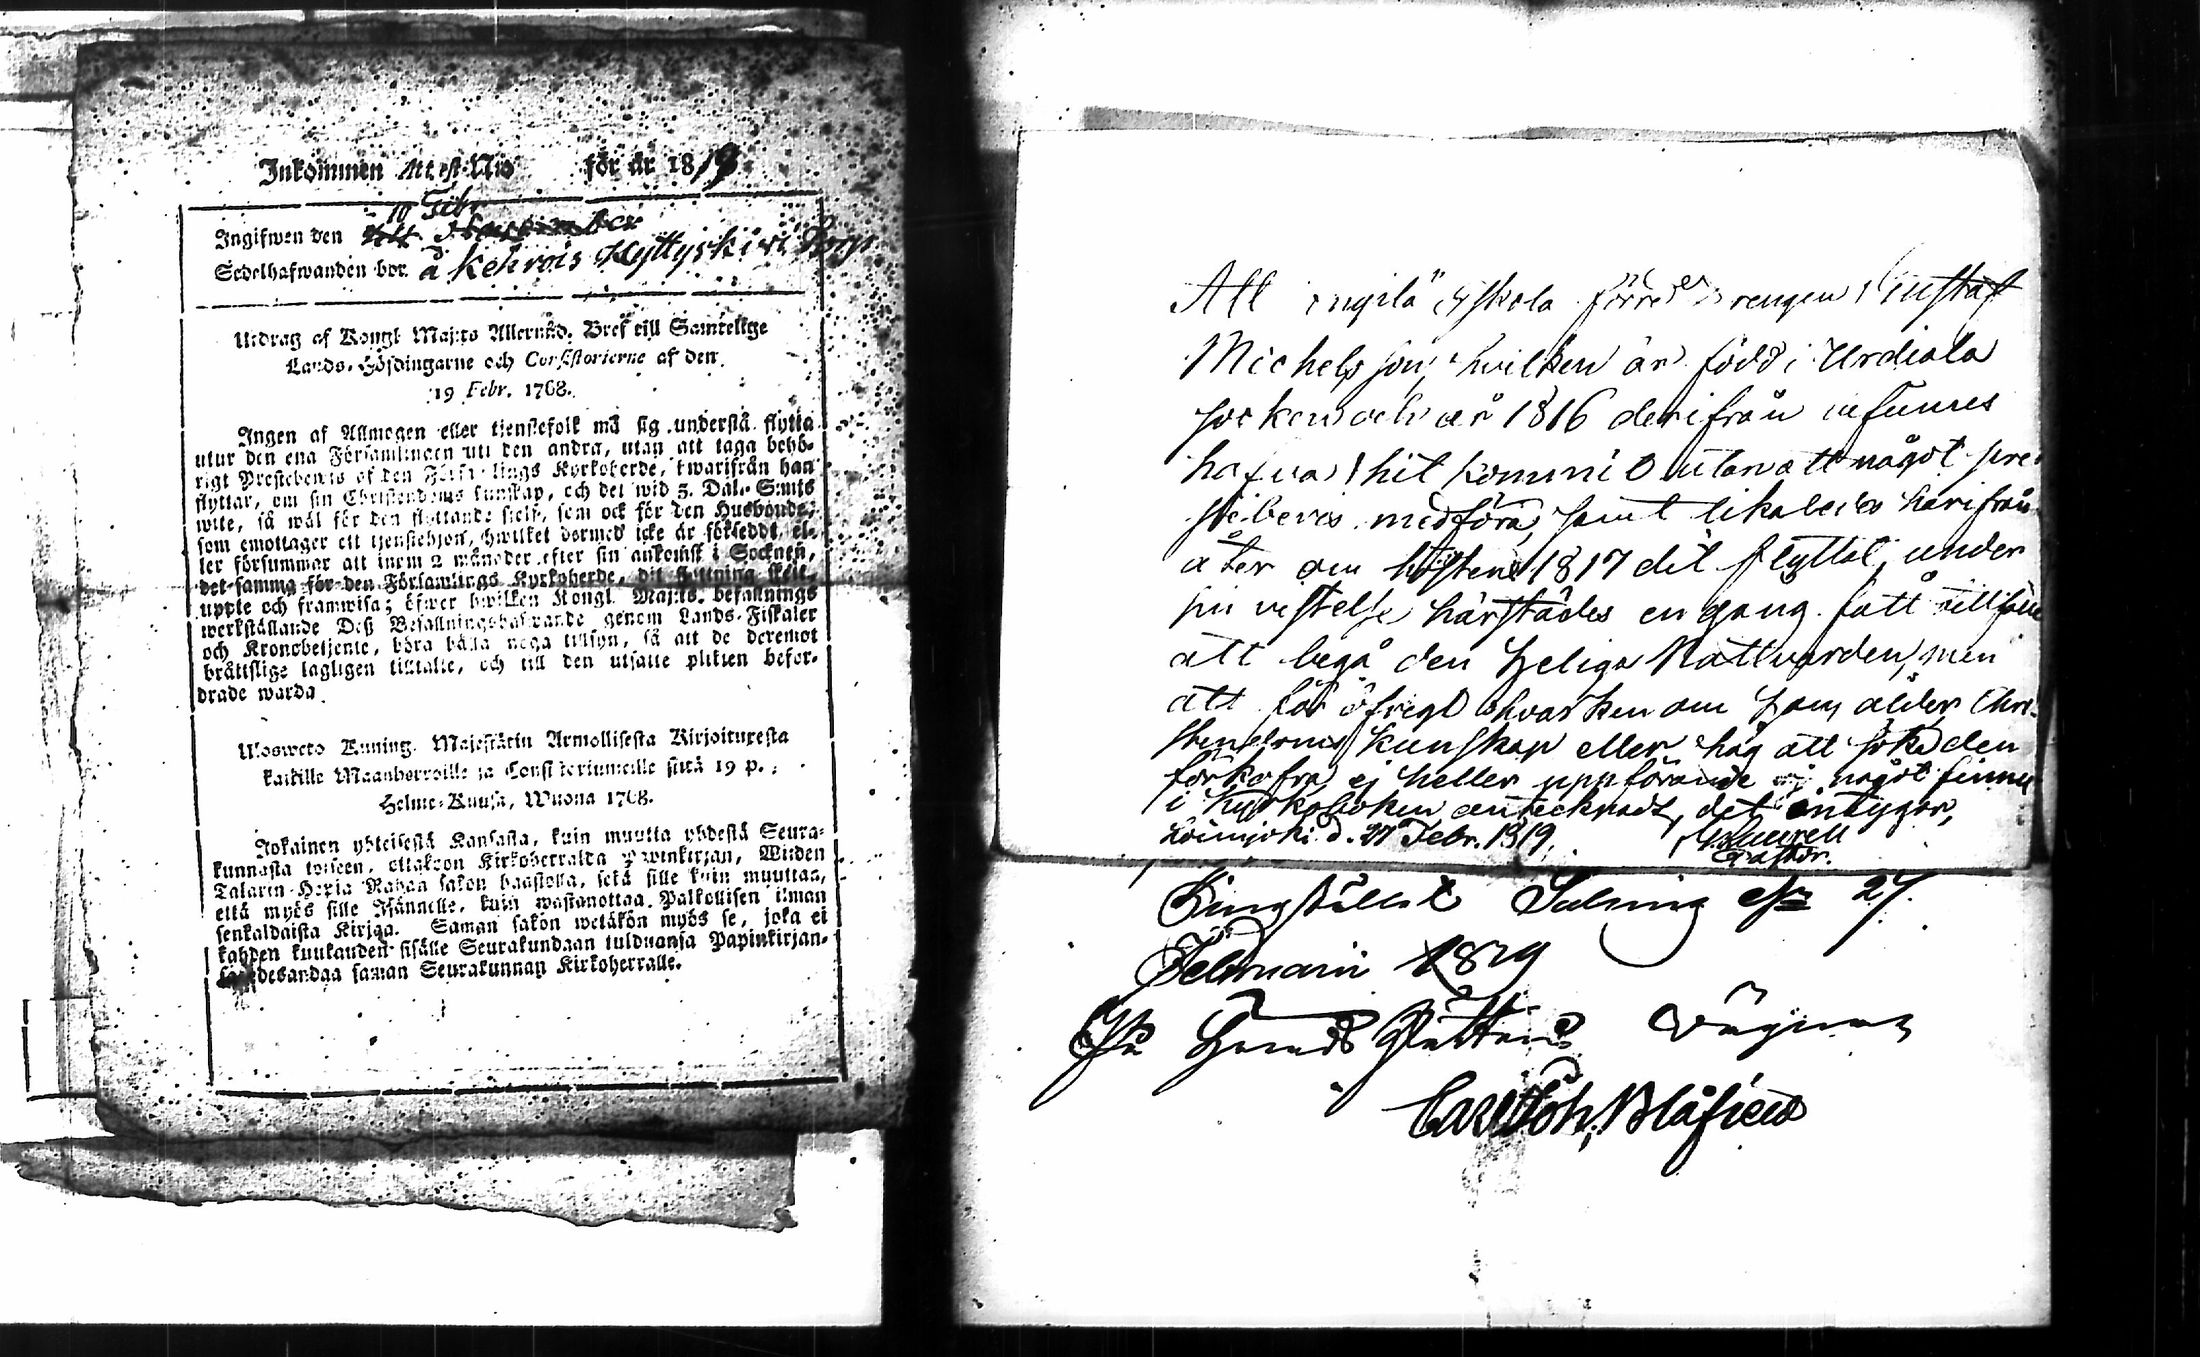 Inkommen Attest N:o för år 1819
Ingifwen den 10 Febr
Sedelhafwanden bor å Kehrois Kyttyskivi Torp
Utdrag af Kongl. Maj:ts Allernåd. Bref till Samtelige
Lands-Höfdingarne och Consistorierne af den
19 Febr. 1768.
Ingen af Allmogen eller tjenstefolk må sig understå flytta
utur den ena Församlingen uti den andra, utan att taga behö-
rigt Prestebewis af den Församlings Kyrkoherde, hwarifrån han
flyttar, om sin Christendoms kunskap, och det wid 3. Dal. S:mts
wite, så wäl för den flyttande sjelf, som ock för den Husbonde,
som emottager ett tjenstehjon, hwilket dermed icke är försedt, el-
ler försummar att inom 2 månader efter sin ankomst i Socknen,
det samma för den Församlings Kyrkoherde, dit flyttning skett,
uppte och framwisa; öfwer hwilken Kongl. Maj:ts. befallnings
werkställande Deß Befallningshafwande genom Lands-Fiskaler
och Kronobetjente, böra hålla noga tillsyn, så att de deremot
bråttslige lagligen tilltalte, och till den utsatte plikten befor-
drade warda.
Ulosweto Kuning. Majestätin Armollisesta Kirjoituxesta
kaikille Maanherroille ja Consistoriumeille siitä 19 p.
Helme-Kuusa, Wuona 1768.
Jokainen yhteisestä Kansasta, kuin muutta yhdestä Seura-
kunnasta toiseen, ottakoon Kirkoherralda Papinkirjan, Wiiden
Talarin Hopia Rahan sakon haastolla, sekä sille kuin muuttaa,
että myös sille Isännelle, kuin wastanottaa Palkollisen ilman
senkaldaista Kirjaa. Saman sakon wetäkön myös se, joka ei
kahden kuukauden sisälle Seurakundaan tulduansa Papinkirjan-
sa edesandaa saman Seurakunnan Kirkoherralle.
Att Gustaf
Michelsson, hvilken är född i Urdiala
socken och år 1816 derifrån
hafva hit kommit utan att något pre-
stebevis medföra, samt likaledes härifrån
åter om hösten 1817 dit flyttat, under
sin vistelse härstädes en gång fått tillfälle
att begå den Heliga Nattvarden, men
att för öfrigt hvarken om hans ålder Chri-
stendoms kunskap eller håg att söka den
förkofra ej heller uppförande något finnes
i kyrkoboken antecknadt, det intygar,
Loimjoki d. 27 Febr. 1819.
Pastor.
27.
Februarii 1819
På
Carl Joh. Blåfield